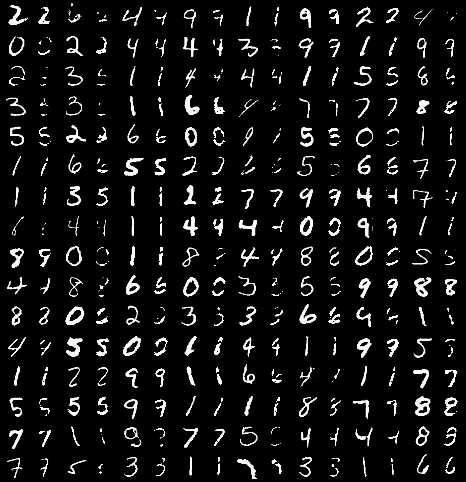 2 2 6 4 4 9 9 1 1 9 9 2 2 4
0 0 2 2 4 4 4 4 3 9 9 1 1 9 9
2 3 1 1 4 4 4 4 1 1 5 5 8 8
3 3 1 1 6 6 7 7 7 7 8 8
5 5 2 2 6 6 0 0 1 1 5 5 0 0 1 1
1 1 6 6 5 5 2 2 6 6 5 6 6 7 7
1 1 3 5 1 1 2 2 7 7 9 9 4 4 7
4 4 1 1 4 4 4 0 0 9 9 1 1
8 9 0 0 1 1 8 4 4 8 8 0 0 5 5
4 4 8 8 6 6 0 0 3 3 5 5 9 9 8 8
8 8 0 0 2 2 3 3 3 3 6 6 9 1 1
4 4 5 5 0 0 1 1 4 4 1 1 9 9 5 5
1 1 2 2 9 9 1 1 6 6 4 1 1 7 7
5 5 5 5 9 9 1 1 1 1 8 8 7 7 8 8
7 7 1 1 9 7 7 5 4 4 4 4 8 8
7 7 5 3 3 1 1 7 3 3 1 1 6 6